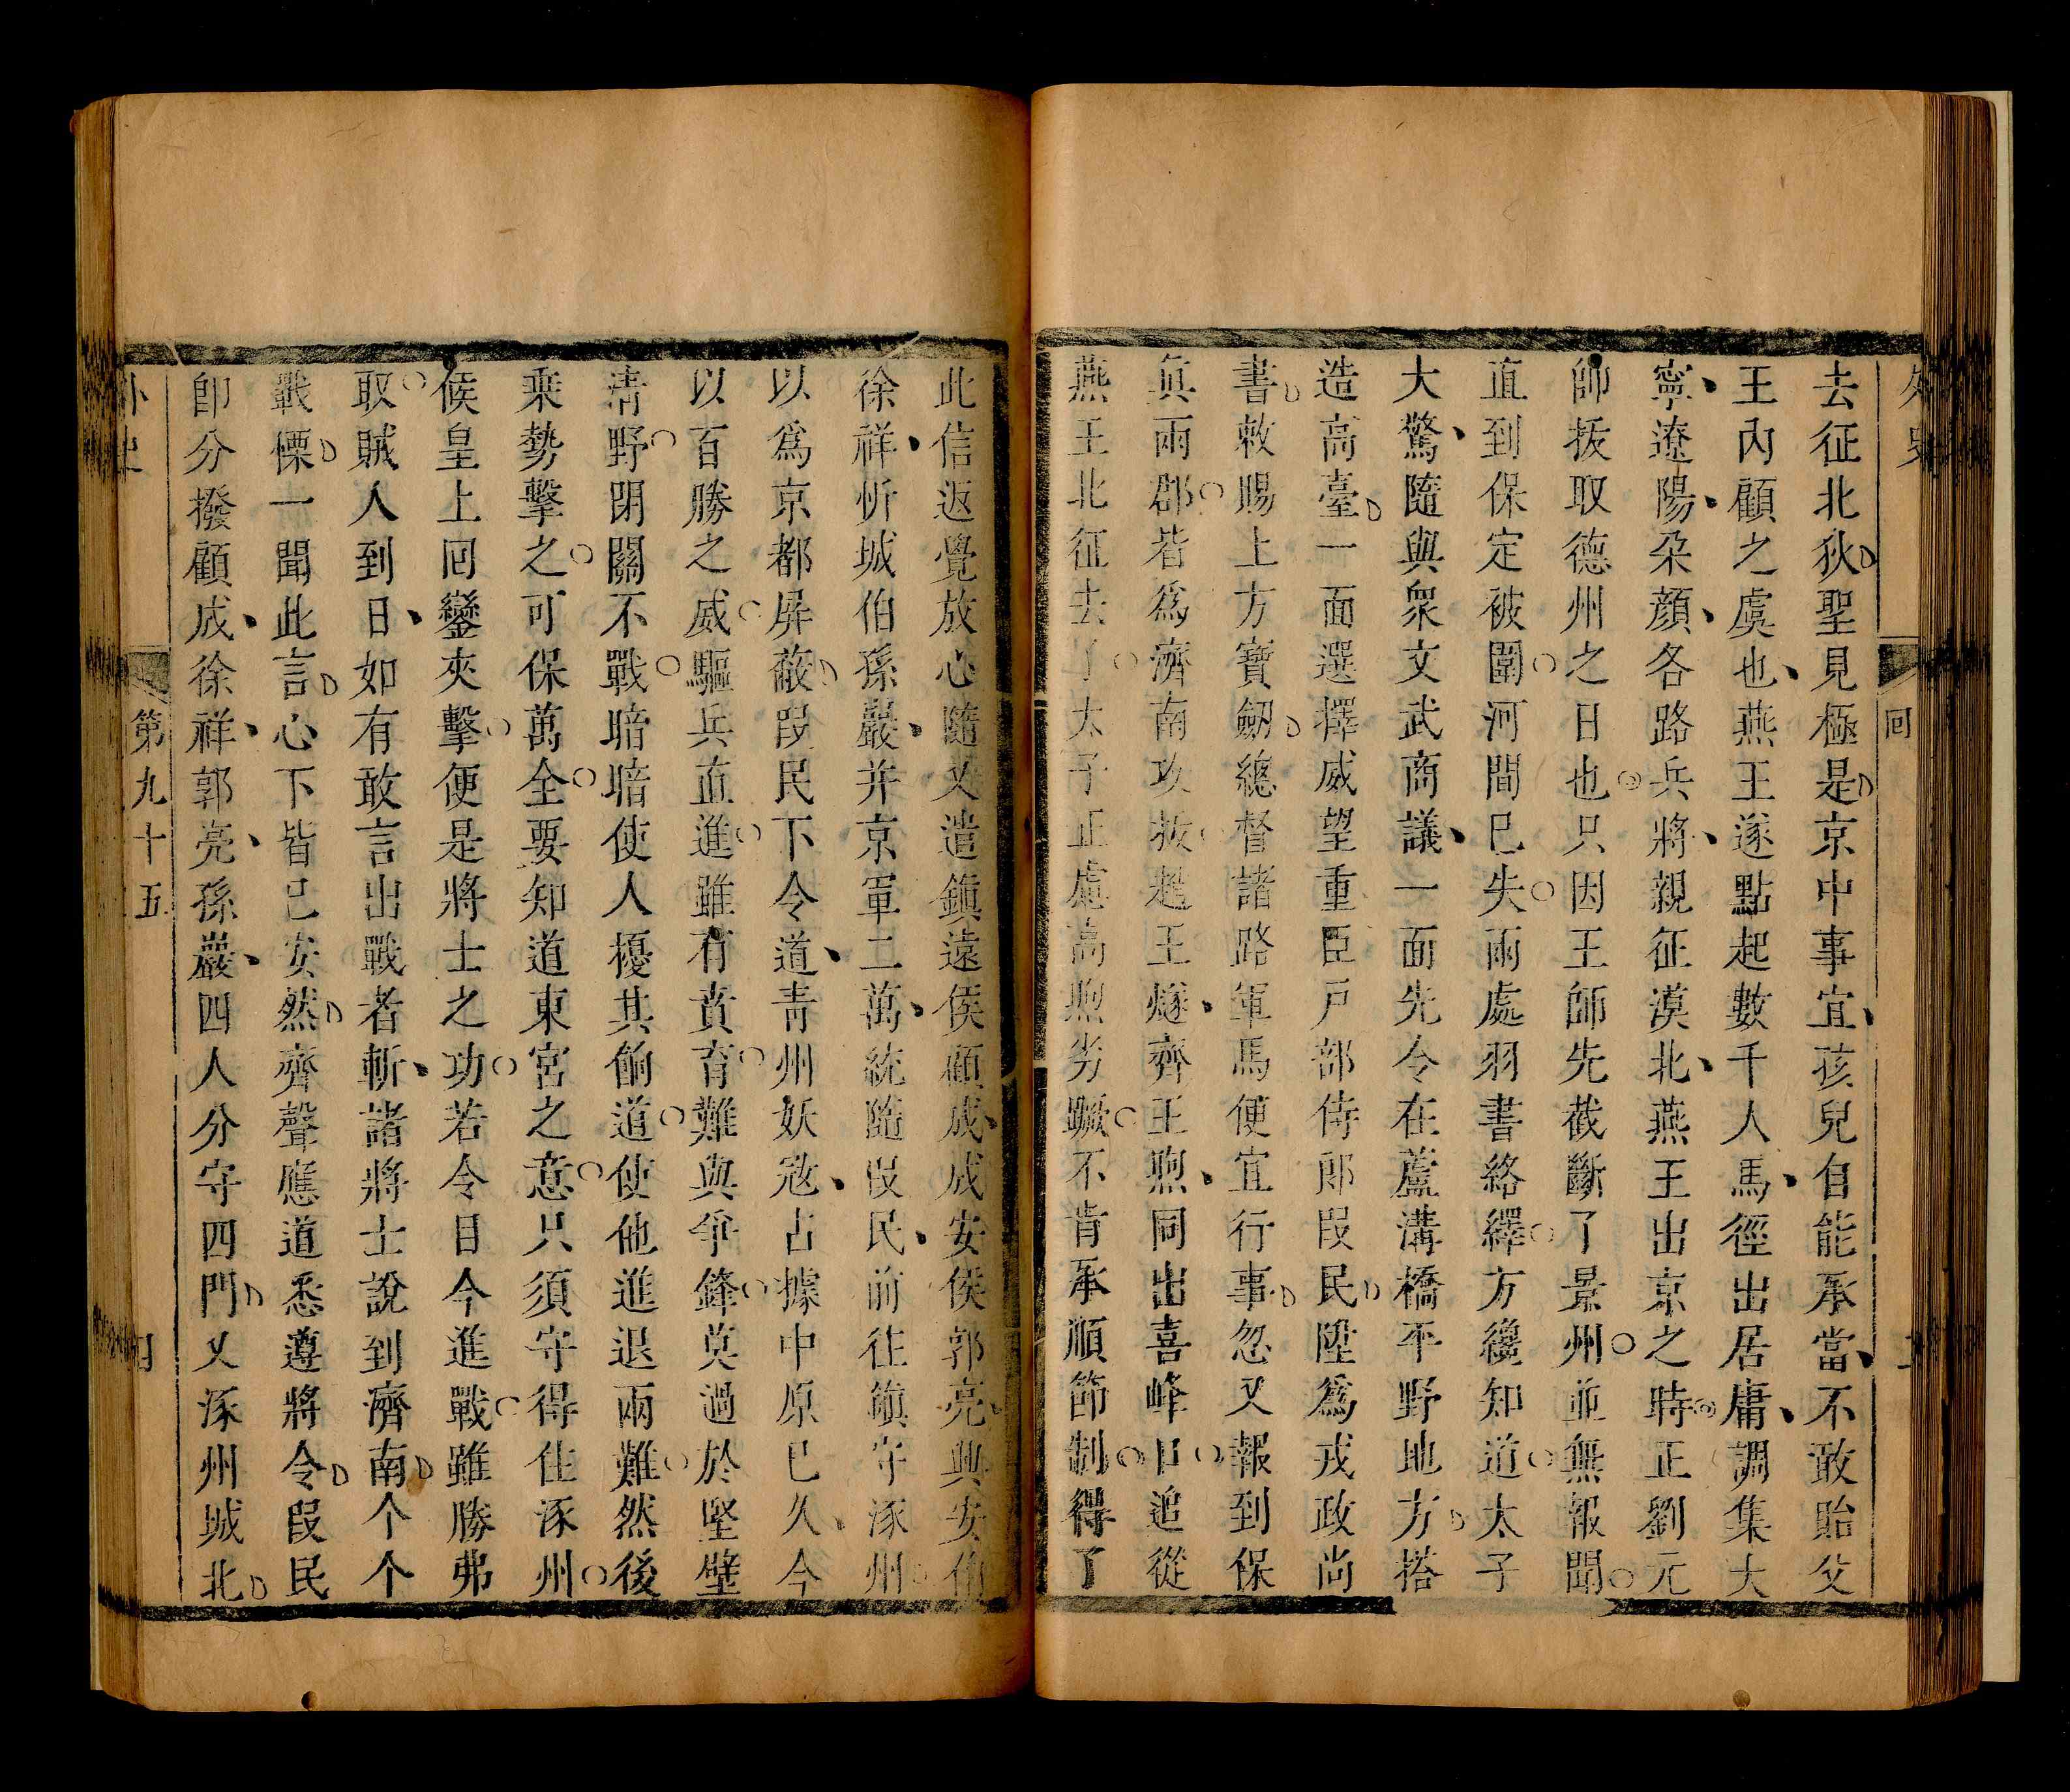 外史
回
去征北狄聖見極是京中事宜孩兒自能承當不敢貽父
王內顧之虞也燕王遂點起數千人馬徑出居庸調集大
寧遼陽朵顏各路兵將親征漠北燕王出京之時正劉元
帥拔取德州之日也只因王師先截斷了景州並無報聞
直到保定被圍河間已失兩處羽書絡繹方纔知道太子
大驚隨與衆文武商議一面先令在蘆溝橋平野地方搭
造高臺一面選擇威望重臣戶部侍郎段民陞爲戎政尚
書敕賜上方寶劒總督諸路軍馬便宜行事忽又報到保
眞兩郡皆爲濟南攻拔趙王燧齊王煦同出喜峰口追從
燕王北征去了太子正慮高煦劣蹶不肯承順節制得了
此信返覺放心隨又遣鎭遠侯顧成成安侯郭亮興安伯
徐祥忻城伯孫巖并京軍二萬統隨段民前往鎭守涿州
以爲京都屏蔽段民下令道青州妖寇占據中原已久今
以百勝之威驅兵直進雖有賁育難與爭鋒莫過於堅壁
清野閉關不戰暗暗使人擾其餉道使他進退兩難然後
乘勢擊之可保萬全要知道東宮之意只須守得住涿州
候皇上回鑾夾擊便是將士之功若令目今進戰雖勝弗
取賊人到日如有敢言出戰者斬諸將士說到濟南个个
戰慄一聞此言心下皆已安然齊聲應道悉遵將令段民
卽分撥顧成徐祥郭亮孫巖四人分守四門又涿州城北
外史
第九十五
四